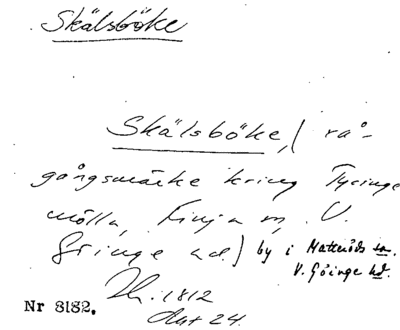 Skälsböke
Skälsböke, (rå-
gångsmärke kring Tyringe
mölla, Finja sn, V.
Göinge hd.) by i Matteröds sn.
V. Göinge hd.
1812
Akt 24.
Nr 8182.